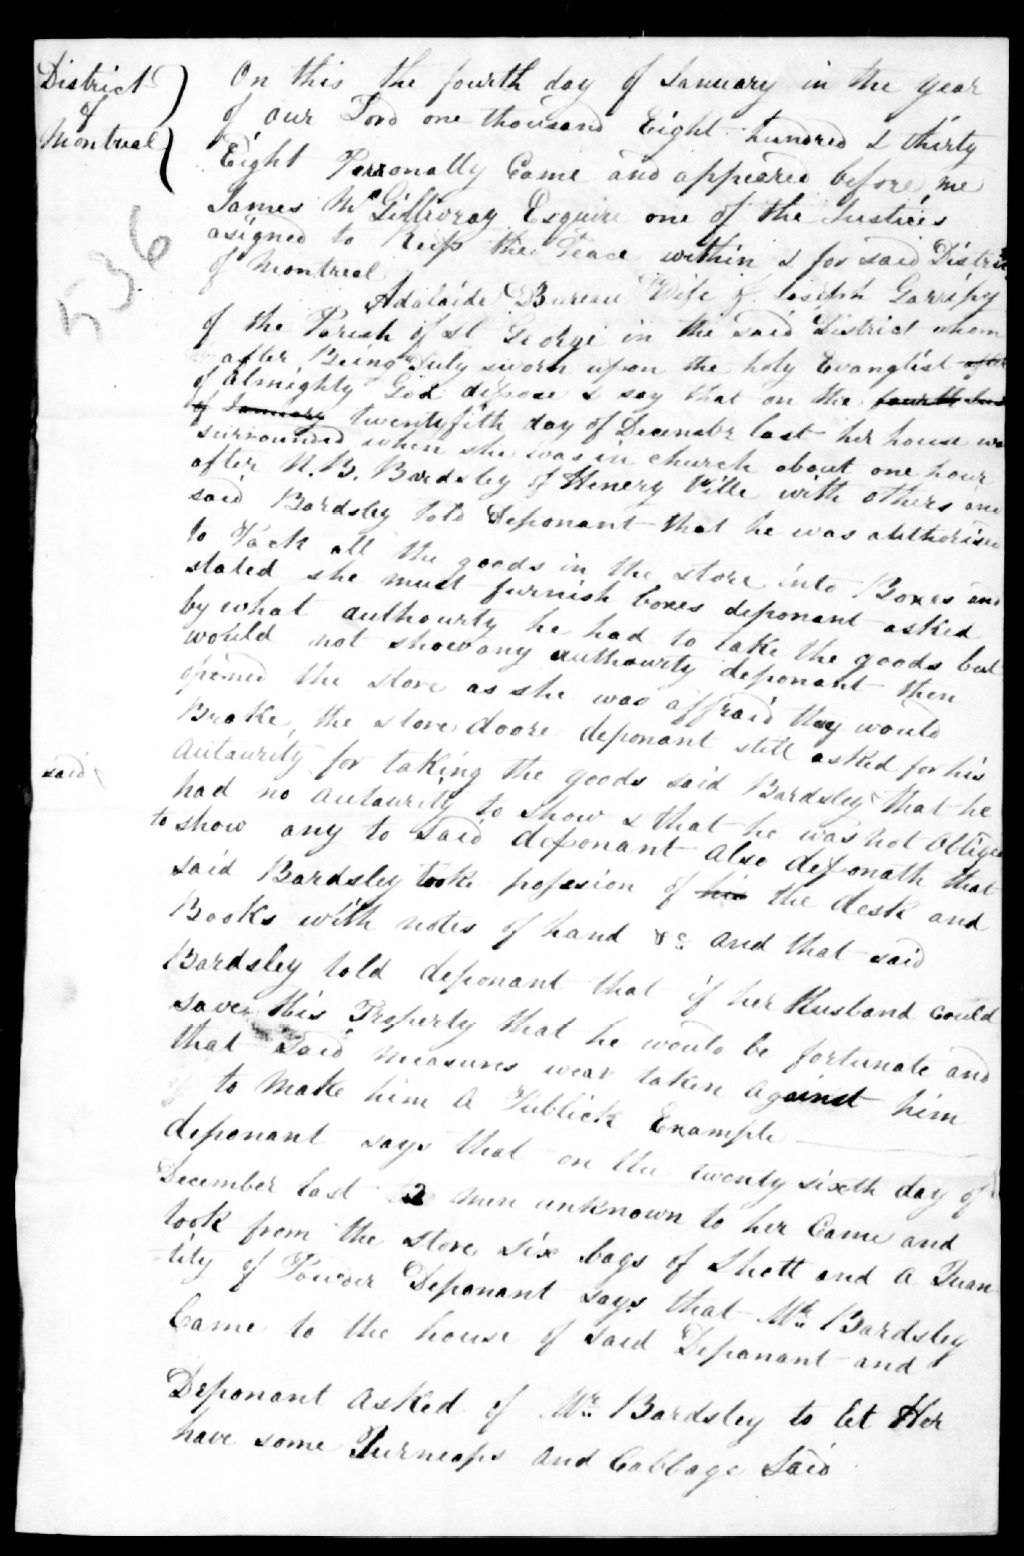 District
of
Montreal
536
On this the fourth day of January in the year
of our Lord one thousand Eight hundred & thirty
Eight Personally Came and appeared before me
James McGillivray Esquire one of the Justices
asigned to Keep the Peace within & for said District
of Montreal
Adelaide Bureau Wife of Joseph Garripy
of the Parish of St George in the said District whom
after Being Duly sworn upon the holy Evanglist
of Almighty God depose & say that on the fourth
of January twentyfith day of Decembr last her house was
surrounded when she was in church about one hour
after N. B. Bardsley of Henery Ville with others and
said Bardsley told Deponant that he was authorised
to Pack all the goods in the store into Boxes and
stated she must furnish boxes deponant asked
by what authourty he had to take the goods but
would not show any authourty deponant then
opened the store as she was affraid they would
Brake the store doore deponant still asked for his
autaurity for taking the goods said Bardsley that he
said
had no autaurity to show & that he was not obliged
to show any to said deponant also deponath that
said Bardsley tooke posesion of his the desk and
Books with notes of hand &c and that said
Bardsley told deponant that if her Husband could
save His Property that he would be fortunate and
that said measures wear taken against him
to make him a Publick Example
deponant says that on the twenty sixth day of
December last 2 men unknown to her Came and
took from the store six bags of Shott and a Quan
tity of Powder Deponant says that Mr Bardsley
Came to the house of said Deponant and
Deponant asked of Mr Bardsley to let Her
have some Turneaps and Cabbage Said